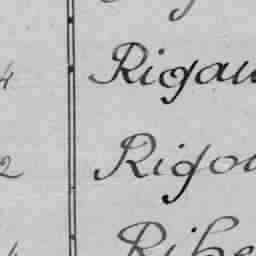 4 Rigau
2 Rigou
Ribe